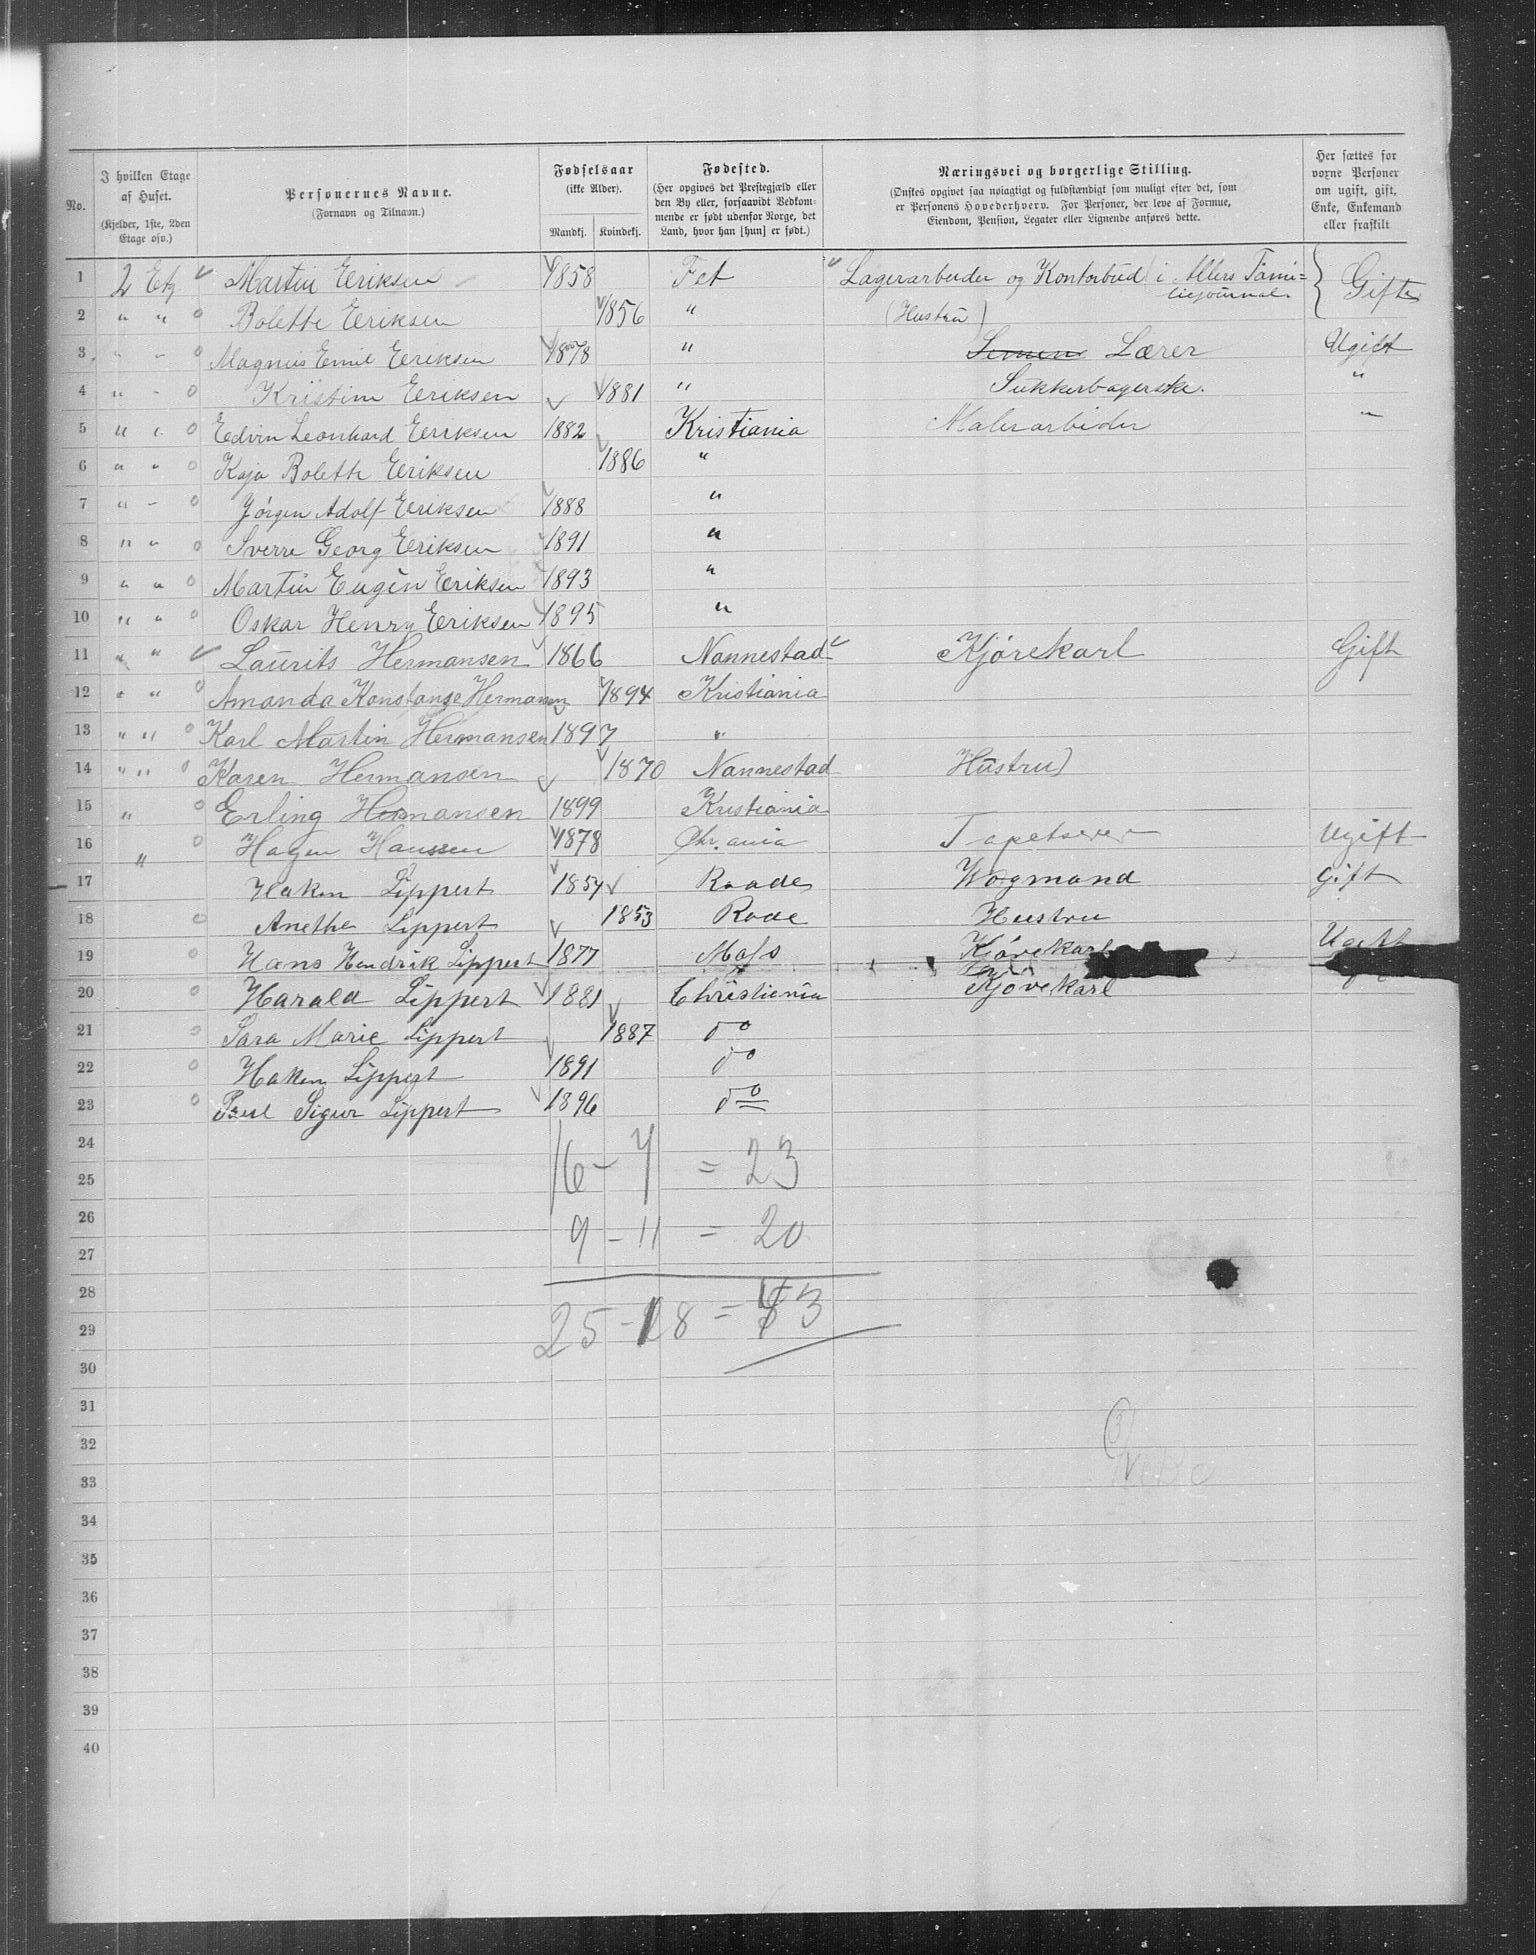 No.
I hvilken Etage af Huset. (Kjelder, 1ste, 2den Etage osv.)
Personernes Navne. (Fornavn og Tilnavn.)
Fødselsaar (ikke Alder). Mandkj. Kvindekj.
Fødested. (Her opgives det Prestegjæld eller den By eller, forsaavidt Vedkommende er født udenfor Norge, det Land, hvor han [hun] er født.)
Næringsvei og borgerlige Stilling. (Ønskes opgivet saa nøiagtigt og fuldstændigt som muligt efter det, som er Personens Hovederhverv. For Personer, der leve af Formue, Eiendom, Pension, Legater eller Lignende anføres dette.
Her sættes for voxne Personer om ugift, gift, Enke, Enkemand eller fraskilt
1 2 Etg Martin Eriksen 1858 Fet Lagerarbeider og Kontorbud i Allers Familiejournal Gifte
2 " " Bolette Eriksen 1856 " (Hustru)
3 " " Magnus Emil Eriksen 1878 " Lærer Ugift
4 " " Kristine Eriksen 1881 " Sukkerbagerske. "
5 " " Edvin Leonhard Eriksen 1882 Kristiania Malerarbeider "
6 " " Kaja Bolette Eriksen 1886 "
7 " " Jørgen Adolf Eriksen 1888 "
8 " " Sverre Georg Eriksen 1891 "
9 " " Martin Eugèn Eriksen 1893 "
10 " " Oskar Henry Eriksen 1895 "
11 " " Laurits Hermansen 1866 Nannestad Kjørekarl Gift
12 " " Amanda Konstanse Hermansen 1894 Kristiania
13 " " Karl Martin Hermansen 1897 "
14 " " Karen Hermansen 1870 Nannestad Hustru)
15 " Erling Hermansen 1899 Kristiania
16 " Hagen Hanssen 1878 Chr.ania Tapetserer Ugift
17 Haken Lippert 1854 Raade Vogmand Gift
18 Anethe Lippert 1853 Rade Hustru
19 Hans Hendrik Lippert 1877 Moss Kjørekarl Ugift
20 Harald Lippert 1881 Christiania Kjørekarl
21 Sara Marie Lippert 1887 do
22 Haken Lippert 1891 do
23 Paul Sigur Lippert 1896 do
24
16 – 7 = 23
25
26
9 – 11 = 20
27
28
25 – 18 = 43
29
30
31
32
33
34
35
36
37
38
39
40